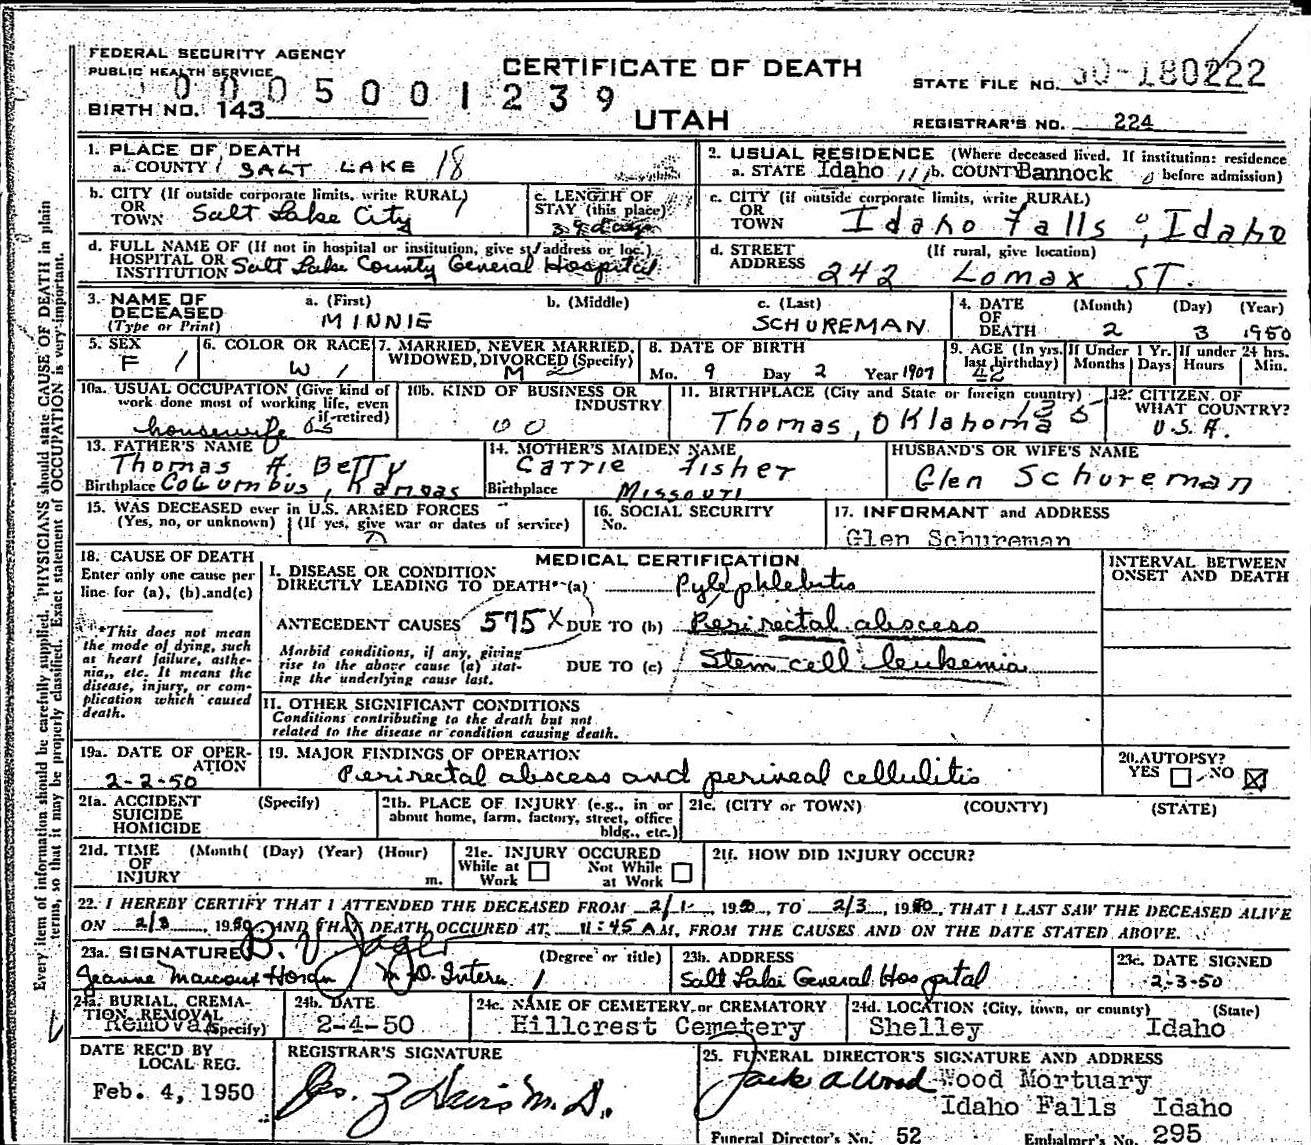 FEDERAL SECURITY AGENCY
PUBLIC HEALTH SERVICE
CERTIFICATE OF DEATH
STATE FILE NO. 50-180222
0005001239
BIRTH NO. 143
UTAH
REGISTRAR'S NO. 224
1. PLACE OF DEATH
a. COUNTY SALT LAKE 18
2. USUAL RESIDENCE (Where deceased lived. If institution: residence
a. STATE Idaho b. COUNTY Bannock before admission)
b. CITY (If outside corporate limits, write RURAL)
OR
TOWN Salt Lake City
c. LENGTH OF
STAY (this place)
c. CITY (if outside corporate limits, write RURAL)
OR
TOWN Idaho Falls, Idaho
d. FULL NAME OF (If not in hospital or institution, give st/ address or loc.)
HOSPITAL OR
INSTITUTION Salt Lake County General Hospital
d. STREET (If rural, give location)
ADDRESS 242 Lomax ST.
3. NAME OF DECEASED (Type or Print)
a. (First) b. (Middle) c. (Last)
MINNIE SCHUREMAN
4. DATE OF DEATH (Month) (Day) (Year)
2 3 1950
5. SEX
F 1
6. COLOR OR RACE
W 1
7. MARRIED, NEVER MARRIED,
WIDOWED, DIVORCED (Specify)
M
8. DATE OF BIRTH
Mo. 9 Day 2 Year 1907
9. AGE (In yrs. last birthday)
42
If Under 1 Yr.
Months Days
If under 24 hrs.
Hours Min.
10a. USUAL OCCUPATION (Give kind of
work done most of working life, even
if retired)
housewife
10b. KIND OF BUSINESS OR
INDUSTRY
11. BIRTHPLACE (City and State or foreign country)
Thomas, Oklahoma
12. CITIZEN OF
WHAT COUNTRY?
U.S.A.
13. FATHER'S NAME
Thomas A. Betty
Birthplace Columbus, Kansas
14. MOTHER'S MAIDEN NAME
Carrie Fisher
Birthplace Missouri
HUSBAND'S OR WIFE'S NAME
Glen Schureman
15. WAS DECEASED ever in U.S. ARMED FORCES
(Yes, no, or unknown) (If yes, give war or dates of service)
16. SOCIAL SECURITY
No.
17. INFORMANT and ADDRESS
Glen Schureman
18. CAUSE OF DEATH
Enter only one cause per
line for (a), (b) and (c)
*This does not mean
the mode of dying, such
as heart failure, asthe-
nia, etc. It means the
disease, injury, or com-
plication which caused
death.
MEDICAL CERTIFICATION
I. DISEASE OR CONDITION
DIRECTLY LEADING TO DEATH* (a) Pylephlebitis
ANTECEDENT CAUSES 575X DUE TO (b) Perirectal abscess
Morbid conditions, if any, giving
rise to the above cause (a) stat-
ing the underlying cause last.
DUE TO (c) Stem cell leukemia
INTERVAL BETWEEN
ONSET AND DEATH
II. OTHER SIGNIFICANT CONDITIONS
Conditions contributing to the death but not
related to the disease or condition causing death.
19a. DATE OF OPER-
ATION
2-2-50
19. MAJOR FINDINGS OF OPERATION
Perirectal abscess and perineal cellulitis
20. AUTOPSY?
YES NO
21a. ACCIDENT (Specify)
SUICIDE
HOMICIDE
21b. PLACE OF INJURY (e.g., in or
about home, farm, factory, street, office
bldg., etc.)
21c. (CITY or TOWN) (COUNTY) (STATE)
21d. TIME (Month( (Day) (Year) (Hour)
OF
INJURY m.
21e. INJURY OCCURED
While at Work
Not While at Work
21f. HOW DID INJURY OCCUR?
22. I HEREBY CERTIFY THAT I ATTENDED THE DECEASED FROM 2/1, 1950, TO 2/3, 1950, THAT I LAST SAW THE DECEASED ALIVE
ON 2/3, 1950 AND THAT DEATH OCCURED AT 11:45 AM, FROM THE CAUSES AND ON THE DATE STATED ABOVE.
23a. SIGNATURE (Degree or title)
B. V. Jager
Jeanne Marcoux Horan M.D. Intern
23b. ADDRESS
Salt Lake General Hospital
23c. DATE SIGNED
2-3-50
24a. BURIAL, CREMA-
TION, REMOVAL (Specify)
Removal
24b. DATE
2-4-50
24c. NAME OF CEMETERY or CREMATORY
Hillcrest Cemetery
24d. LOCATION (City, town, or county) (State)
Shelley Idaho
DATE REC'D BY
LOCAL REG.
Feb. 4, 1950
REGISTRAR'S SIGNATURE
25. FUNERAL DIRECTOR'S SIGNATURE AND ADDRESS
Jack A Wood Wood Mortuary
Idaho Falls Idaho
Funeral Director's No. 52 Embalmer's No. 295
Every item of information should be carefully supplied. PHYSICIANS should state CAUSE OF DEATH in plain
terms, so that it may be properly classified. Exact statement of OCCUPATION is very important.